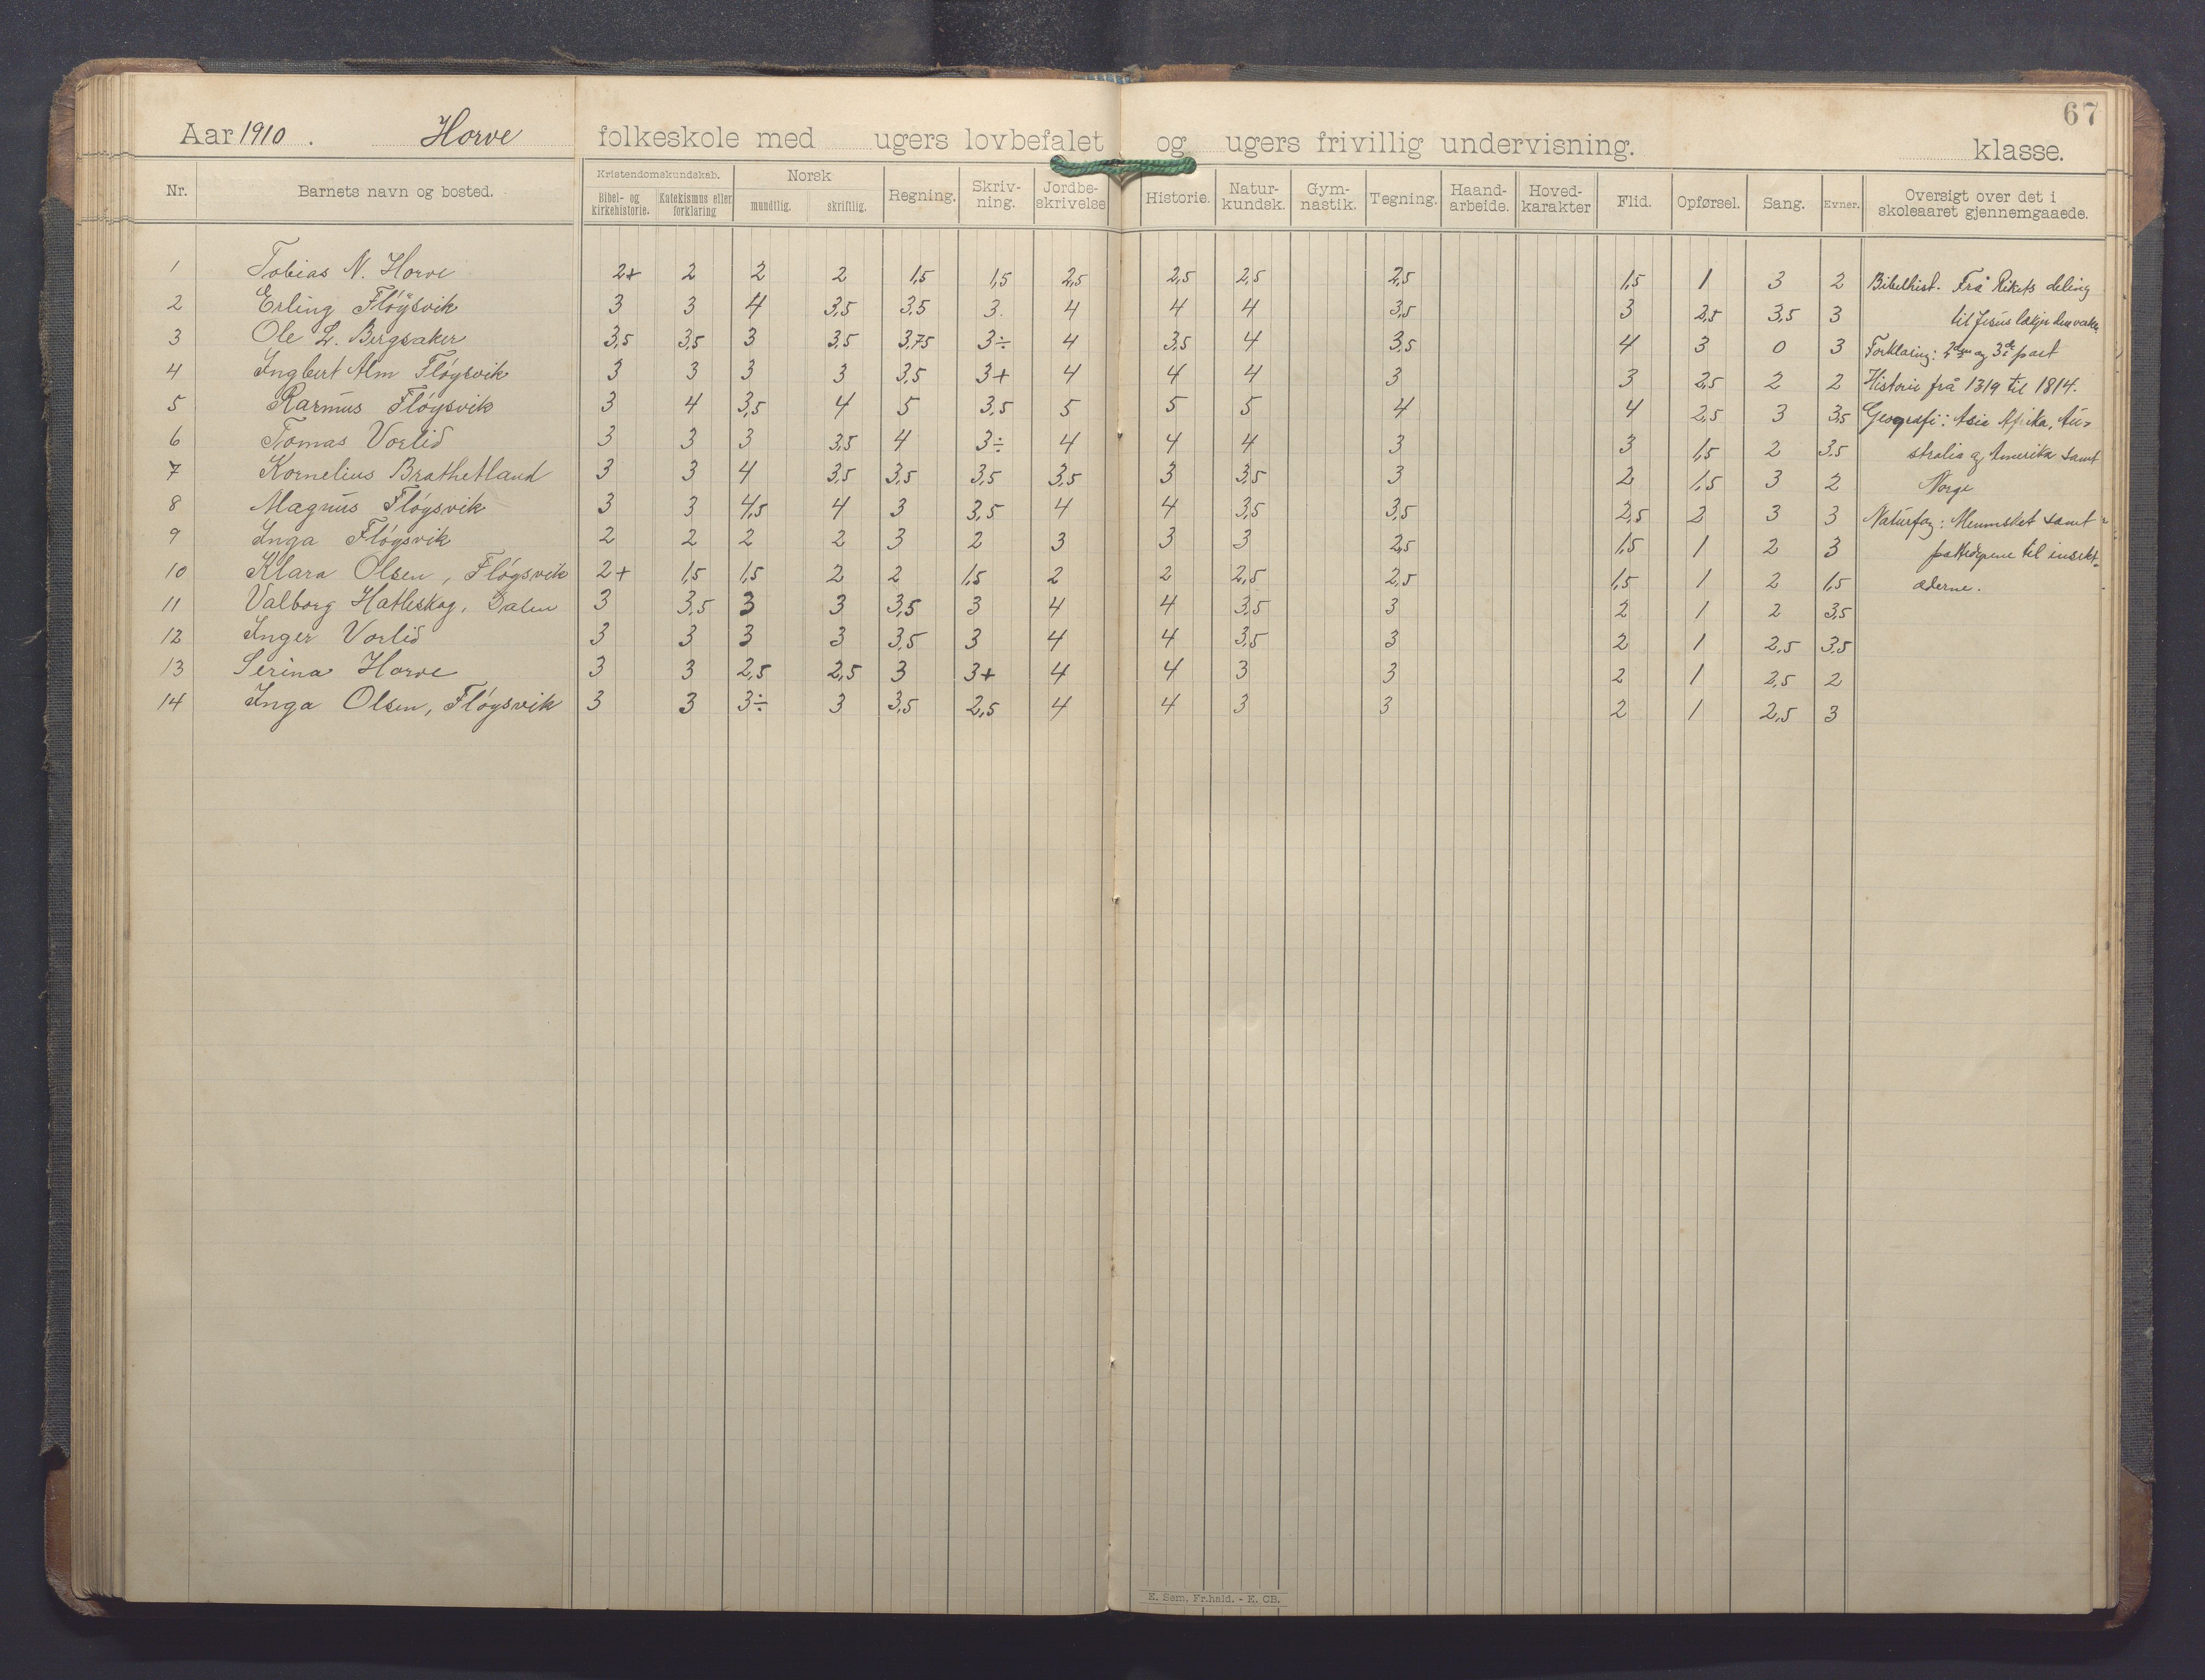 67
Aar 1910. Horve folkeskole med ugers lovbefalet og ugers frivillig undervisning. klasse.
Nr. Barnets navn og bosted. Kristendomskundskab. Bibel- og kirkehistorie. Katekismus eller forklaring Norsk mundtlig. skriftlig. Regning. Skriv-ning. Jordbe-skrivelse Historie. Natur-kundsk. Gym-nastik. Tegning. Haand-arbeide. Hoved-karakter Flid. Opførsel. Sang. Evner. Oversigt over det i skoleaaret gjennemgaaede.
1 Tobias N. Horve 2+ 2 2 2 1,5 1,5 2,5 2,5 2,5 2,5 1,5 1 3 2 Bibelhist. Frå Rikets deling
2 Erling Fløysvik 3 3 4 3,5 3,5 3. 4 4 4 3,5 3 2,5 3,5 3 til Jesus
3 Ole L. Bergsaker 3,5 3,5 3 3,5 3,75 3÷ 4 3,5 4 3,5 4 3 0 3 Forklaring: og 3die part
4 Ingbert Alm Fløysvik 3 3 3 3 3,5 3+ 4 4 4 3 3 2,5 2 2 Historie frå 1319 til 1814.
5 Rasmus Fløysvik 3 4 3,5 4 5 3,5 5 5 5 4 4 2,5 3 3,5 Geografi: Asia Afrika, Au-
6 Tomas Vorlid 3 3 3 3,5 4 3÷ 4 4 4 3 3 1,5 2 3,5 stralia og Amerika samt
7 Kornelius Brathetland 3 3 4 3,5 3,5 3,5 3,5 3 3,5 3 2 1,5 3 2 Norge
8 Magnus Fløysvik 3 3 4,5 4 3 3,5 4 4 3,5 3,5 2,5 2 3 3 Naturfag: Mennesket samt
9 Inga Fløysvik 2 2 2 2 3 2 3 3 3 2,5 1,5 1 2 3 pattedyrene til insekt-
10 Klara Olsen, Fløysvik 2+ 1,5 1,5 2 2 1,5 2 2 2,5 2,5 1,5 1 2 1,5 æderne.
11 Valborg Hatleskog, Dalen 3 3,5 3 3 3,5 3 4 4 3,5 3 2 1 2 3,5
12 Inger Vorlid 3 3 3 3 3,5 3 4 4 3,5 3 2 1 2,5 3,5
13 Serina Horve 3 3 2,5 2,5 3 3+ 4 4 3 3 2 1 2,5 2
14 Inga Olsen, Fløysvik 3 3 3÷ 3 3,5 2,5 4 4 3 3 2 1 2,5 3
E. Sem. Fr.hald. - E. CB.